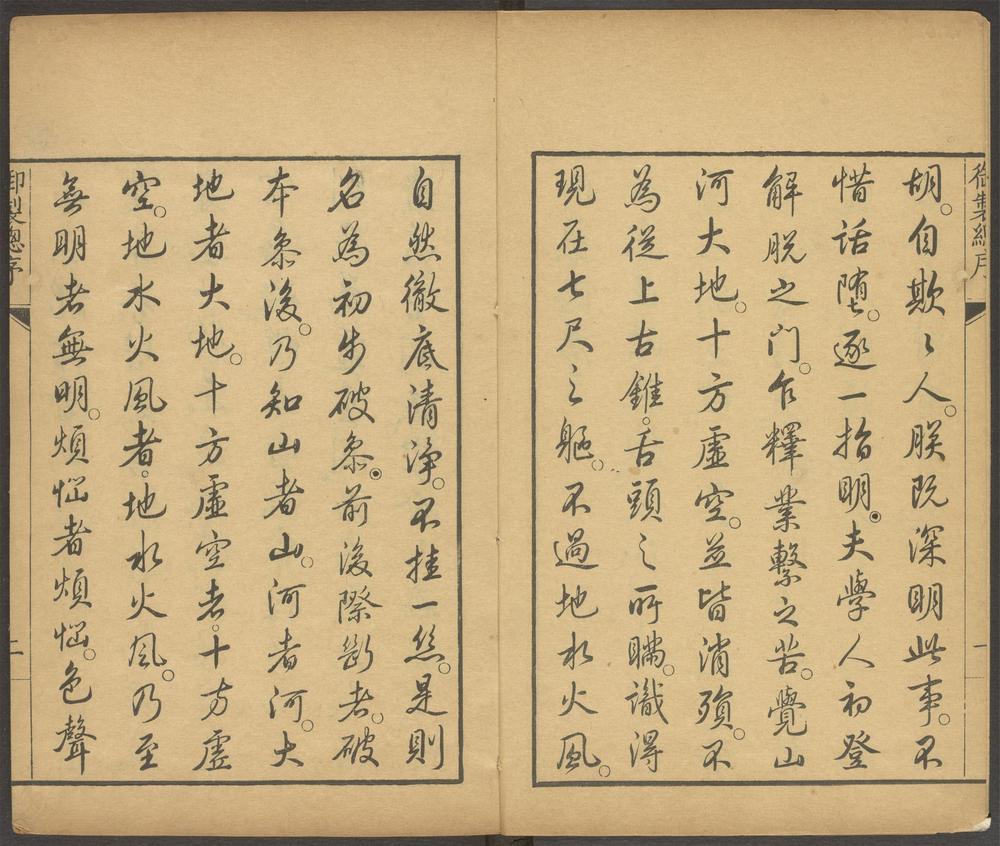 御製總序
一
胡。自欺欺人。朕既深明此事。不
惜話墮。逐一指明。夫學人初登
解脫之門。乍釋業繫之苦。覺山
河大地。十方虛空。並皆消殞。不
為從上古錐。舌頭之所瞞。識得
現在七尺之軀。不過地水火風。
自然徹底清淨。不挂一絲。是則
名為初步破參。前後際斷者。破
本參後。乃知山者山。河者河。大
地者大地。十方虛空者。十方虛
空。地水火風者。地水火風。乃至
無明者無明。煩惱者煩惱。色聲
御製總序
二